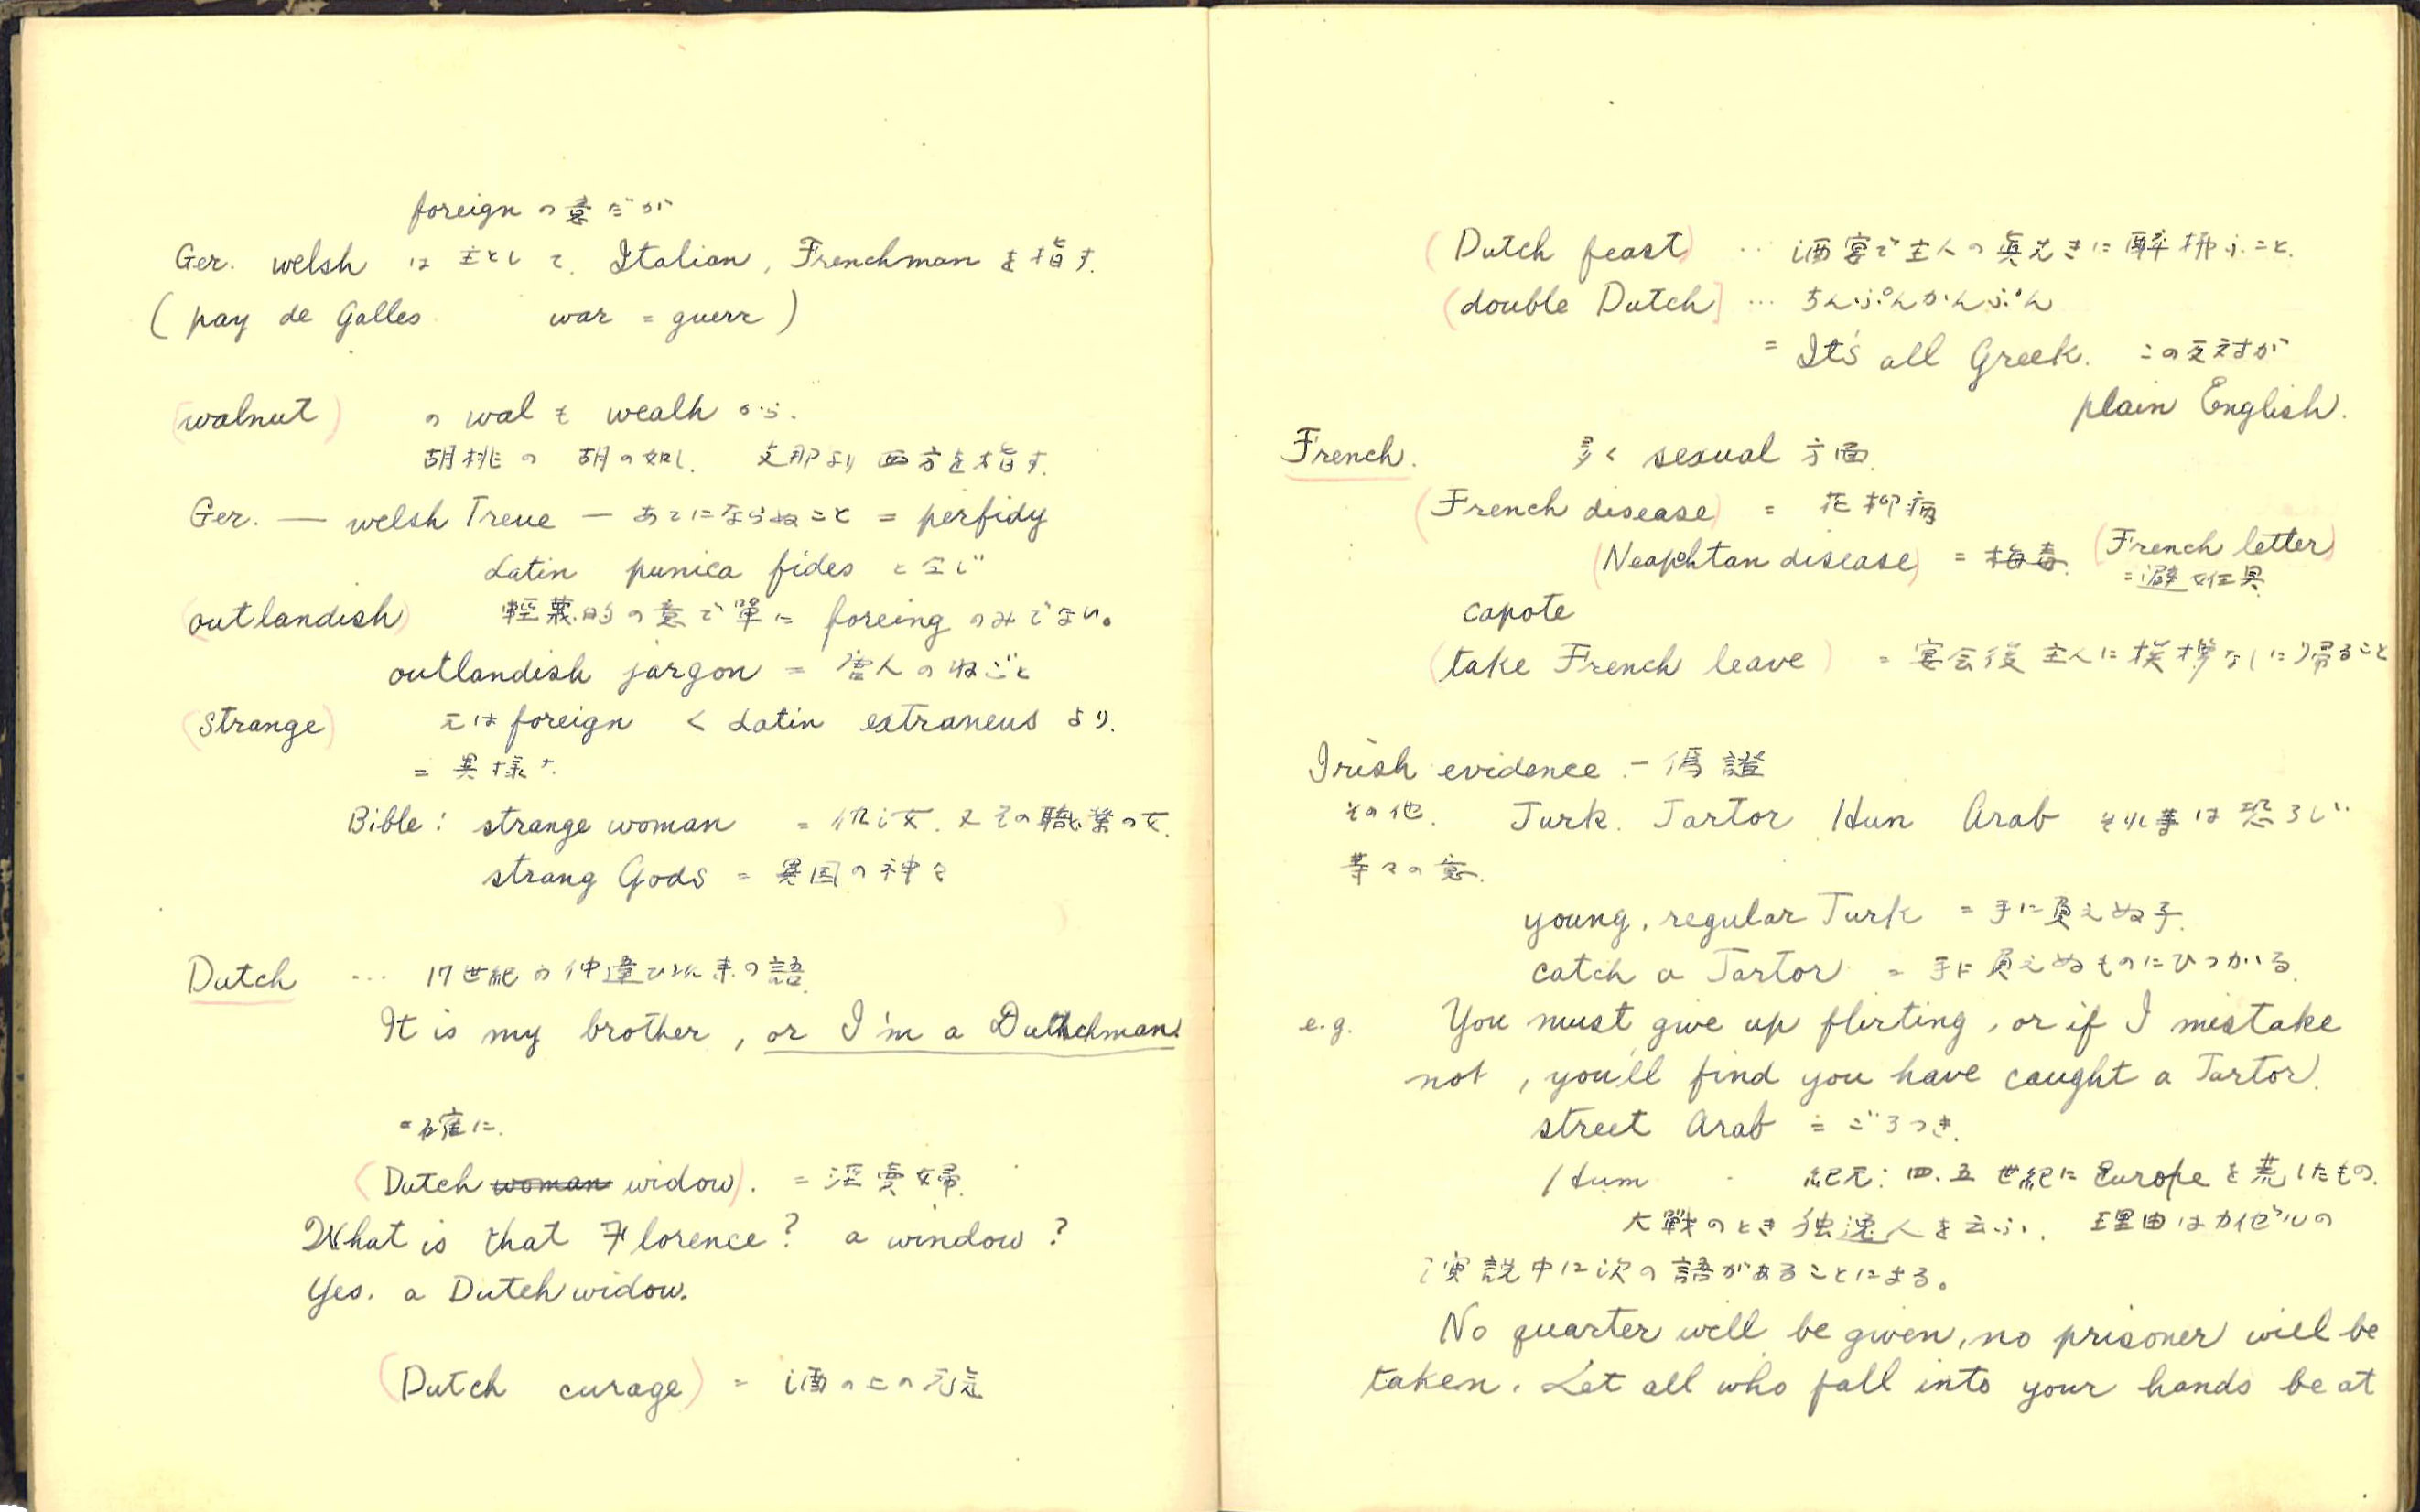 foreign の意だが
Ger. welsh は 主として. Italian, Frenchman を指す.
( pay de Galles war = guerr )
(walnut) の wal も wealh から.
胡桃の 胡の如し. 支那より西方を指す.
Ger. — welsh Treue — あてにならぬこと = perfidy
Latin punica fides と同じ
(outlandish) 輕蔑的の意で單に foreing のみでない。
outlandish jargon = 唐人のねごと
(strange) 元は foreign < Latin extraneus より.
= 異様ナ.
Bible: strange woman = 仇し女. 又その職業の女.
strang Gods = 異国の神々
Dutch … 17世紀の仲違ひ以来の語.
It is my brother, or I'm a Dutchman.
= 確に.
(Dutch woman widow). = 淫賣婦.
What is that Florence? a window?
Yes. a Dutch widow.
(Dutch curage) = 酒の上の元気
(Dutch feast) … 酒宴で主人の眞先きに酔拂ふこと.
(double Dutch) … ちんぷんかんぷん
= It's all Greek. この反対が
plain English.
French. 多く sexual 方面.
(French disease) = 花柳病
(Neapoltan disease) = 梅毒. (French letter)
= 避妊具
capote
(take French leave) = 宴会後主人に挨拶なしに帰ること
Irish evidence. — 僞證
その他. Turk. Tartor Hun Arab それ等は恐ろし
等々の意.
young, regular Turk = 手に負えぬ子.
catch a Tartor = 手に負えぬものにひつかゝる.
e.g. You must give up flirting, or if I mistake
not, you'll find you have caught a Tartor.
street Arab = ごろつき.
Hum 紀元: 四.五世紀に Europe を荒したもの.
大戰のとき独逸人を云ふ. 理由はカイゼルの
演説中に次の語があることによる。
No quarter will be given, no prisoner will be
taken. Let all who fall into your hands be at